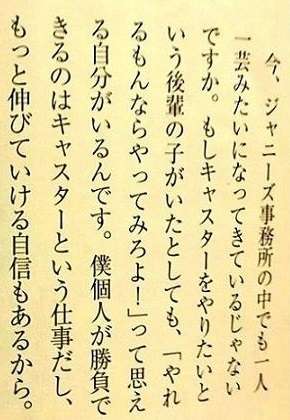 今、ジャニーズ事務所の中でも一人
一芸みたいになってきているじゃない
ですか。もしキャスターをやりたいと
いう後輩の子がいたとしても、「やれ
るもんならやってみろよ!」って思え
る自分がいるんです。僕個人が勝負で
きるのはキャスターという仕事だし、
もっと伸びていける自信もあるから。